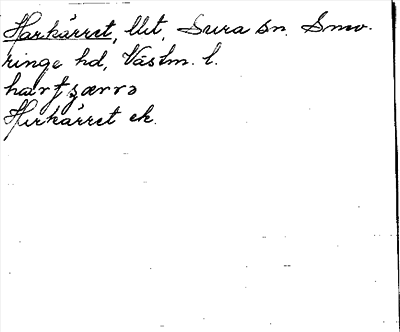 Harkärret, llt, Sura sn. Snev-
ringe hd, Västm. l.
harfʒærrə
Herkärret ek.